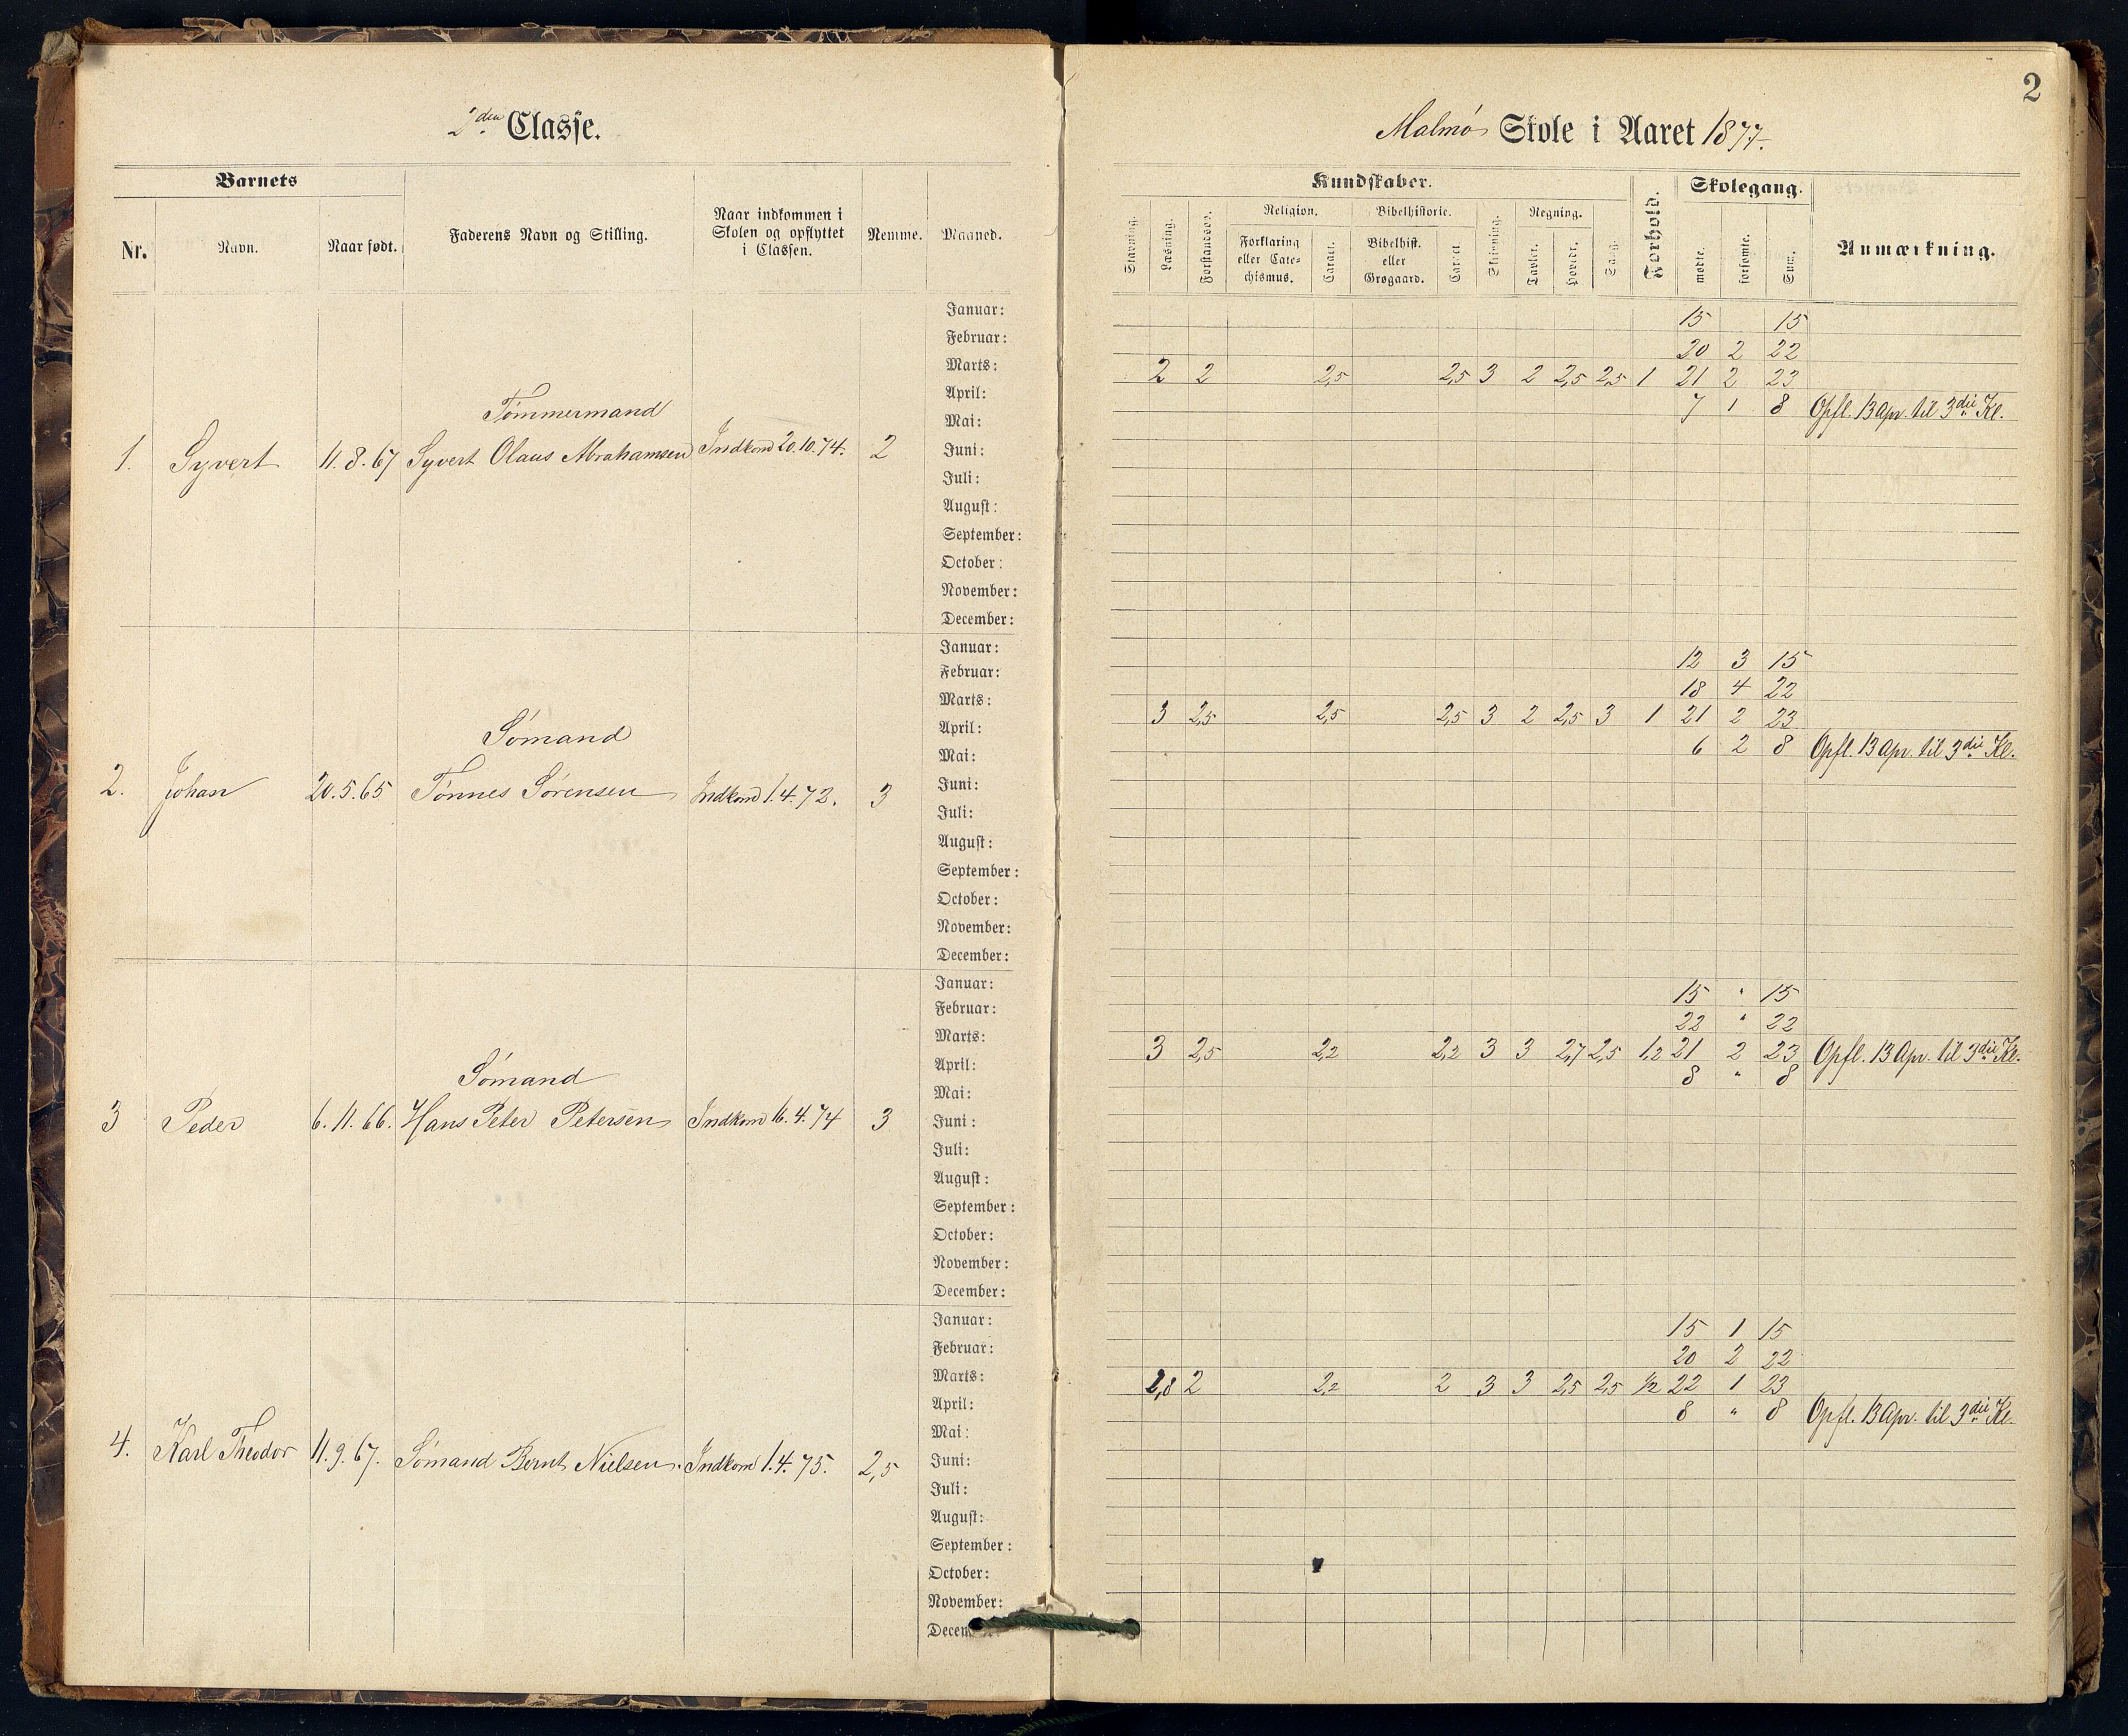 2den Classe.
Barnets
Nr.
Navn.
Naar født.
Faderens Navn og Stilling.
Naar indkommen i
Skolen og opflyttet
i Classen.
Nemme.
Maaned.
Januar:
Februar:
Marts:
April:
Mai:
Juni:
Juli:
August:
September:
October:
November:
December:
Tømmermand
1. Syvert 11.8.67 Syvert Olaus Abrahamsen Indkom 20.10.74. 2
Januar:
Februar:
Marts:
April:
Mai:
Juni:
Juli:
August:
September:
October:
November:
December:
Sømand
2. Johan 20.5.65 Tønnes Sørensen Indkom 1.4.72. 3
Januar:
Februar:
Marts:
April:
Mai:
Juni:
Juli:
August:
September:
October:
November:
December:
Sømand
3 Peder 6.11.66. Hans Peter Petersen Indkom 16.4.74 3
Januar:
Februar:
Marts:
April:
Mai:
Juni:
Juli:
August:
September:
October:
November:
Decem
4. Karl Theodor 11.9.67. Sømand Bernt Nielsen. Indkom 1.4.75. 2,5
2
Malmø Skole i Aaret 1877.
Kundskaber.
Forhold.
Skolegang.
Anmærkning.
Stavning.
Læsning.
Forstandsøv.
Religion.
Forklaring
eller Cate-
chismus.
Caract.
Bibelhistorie.
Bibelhist.
eller
Grøgaard.
Caract.
Skrivning.
Regning.
Tavler.
Hovedr.
Sang.
mødte.
forsømte.
Sum.
15 15
20 2 22
2 2 2,5 2,5 3 2 2,5 2,5 1 21 2 23
7 1 8 Opfl. 13 Apr. til 3die Kl.
12 3 15
18 4 22
3 2,5 2,5 2,5 3 2 2,5 3 1 21 2 23
6 2 8 Opfl. 13 Apr. til 3die Kl.
15 " 15
22 " 22
3 2,5 2,2 2,2 3 3 2,7 2,5 1,2 21 2 23 Opfl. 13 Apr. til 3die Kl.
8 " 8
15 1 15
20 2 22
2,8 2 2,2 2 3 3 2,5 2,5 1/2 22 1 23
8 " 8 Opfl. 13 Apr. til 3die Kl.